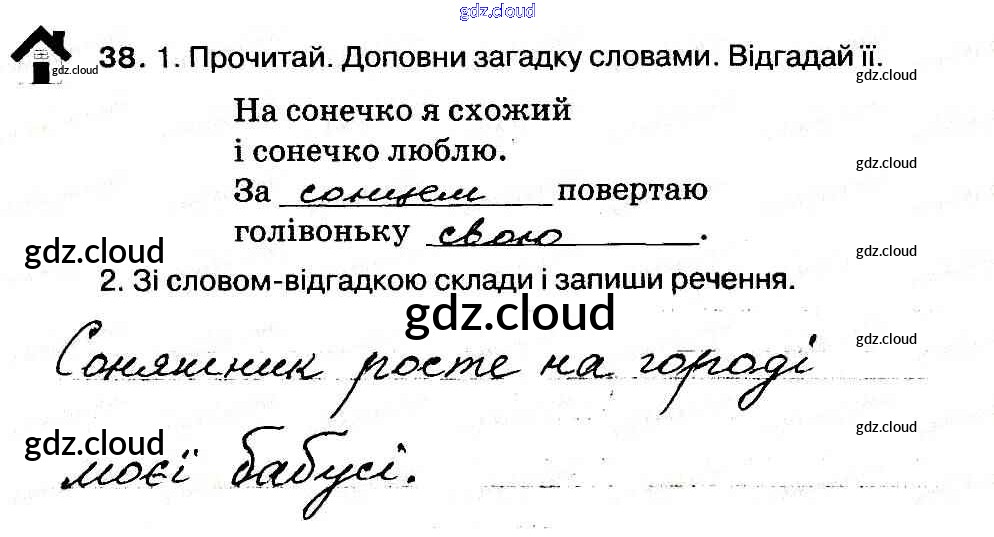 gdz.cloud
38. 1. Прочитай. Доповни загадку словами. Відгадай її.
gdz.cloud
gdz.cloud
На сонечко я схожий
і сонечко люблю.
gdz.cloud
За сонцем повертаю
голівоньку свою.
gdz.cloud
gdz.cloud
2. Зі словом-відгадкою склади і запиши речення.
gdz.cloud
Соняшник росте на городі
gdz.cloud
gdz.cloud
gdz.cloud
моєї бабусі.